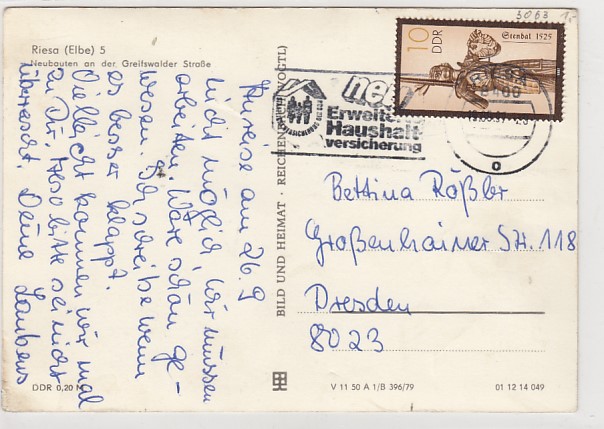 3063 1,-
Riesa (Elbe) 5
Neubauten an der Greifswalder Straße
Anreise am 26.9
nicht möglich, wir müssen
arbeiten. Wäre schön ge-
wesen. Ich schreibe wenn
es besser klappt.
Vielleicht kommen wir mal
zu Dir. Also bitte sei nicht
überrascht. Deine
DDR 0,20 M
BILD UND HEIMAT · REICHENBACH (VOGTL)
10
DDR
Stendal 1525
neu
Erweiterte
Haushalt
versicherung
8400
Bettina Rößler
Großenhainer Str. 118
Dresden
8023
V 11 50 A 1/B 396/79
01 12 14 049